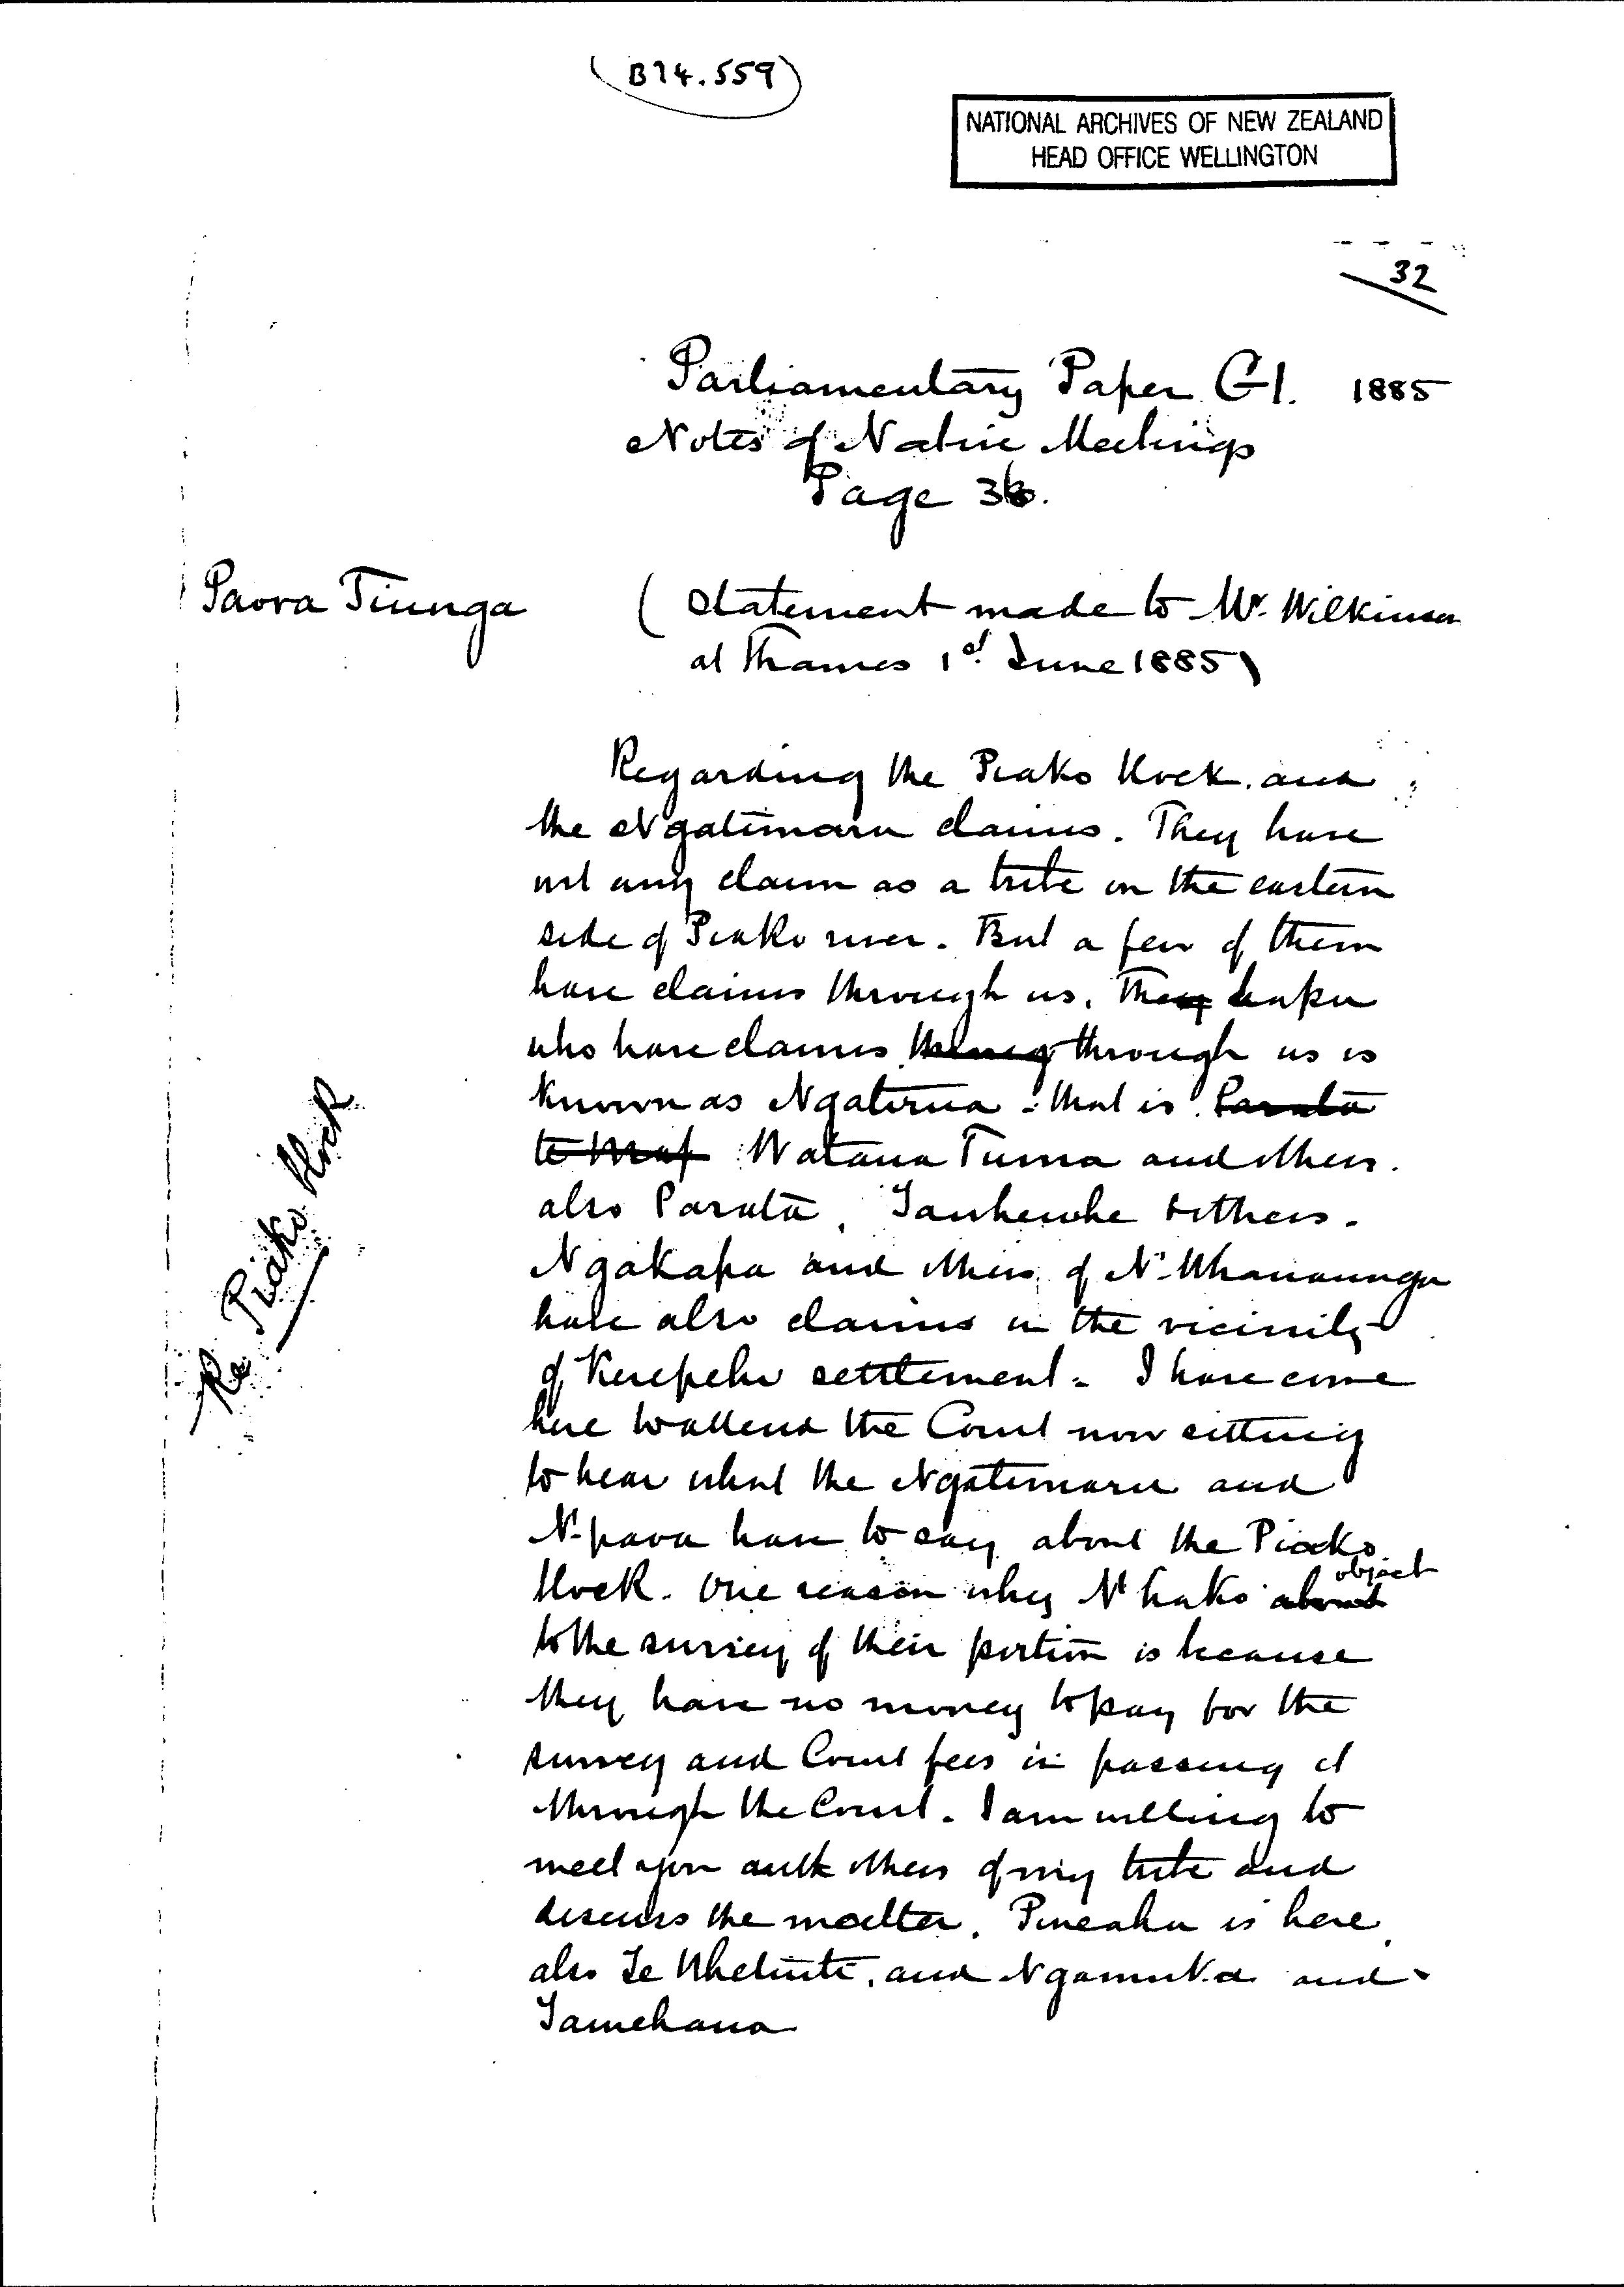 (B74.559)
NATIONAL ARCHIVES OF NEW ZEALAND
HEAD OFFICE WELLINGTON
32
Parliamentary Paper G1. 1885
Notes of Native Meetings
Page 36.
Paora Tiunga (Statement made to Mr. Wilkinson
at Thames 1st June 1885)
Regarding the Piako block. and
the Ngatimaru claims. They have
not any claim as a tribe on the eastern
side of Piako river. But a few of them
have claims through us. The hapu
who have claims through us is
known as Ngatirua - that is Parata
te Watana Tuma and others.
also Parata, Taukewhe & others.
Ngakapa and others of N. Whanaunga
have also claims in the vicinity
of Kerepehi settlement. I have come
here to attend the Court now sitting
to hear what the Ngatimaru and
N. paoa have to say about the Piako
block. One reason why N hako about object
to the survey of their portion is because
they have no money to pay for the
survey and Court fees in passing it
through the Court. I am willing to
meet you with others of my tribe and
discuss the matter. Pineaha is here,
also Te Whetuiti, and Ngamuka and
Tamehana
Re Piako Block